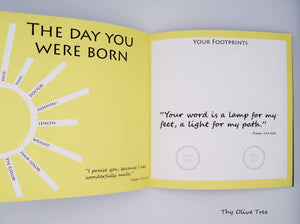 THE DAY YOU
WERE BORN
DATE:
TIME:
DOCTOR:
HOSPITAL:
LENGTH:
WEIGHT:
HAIR COLOR:
EYE COLOR:
"I praise you, because I am
wonderfully made."
YOUR FOOTPRINTS
"Your word is a lamp for my
feet, a light for my path."
Thy Olive Tree